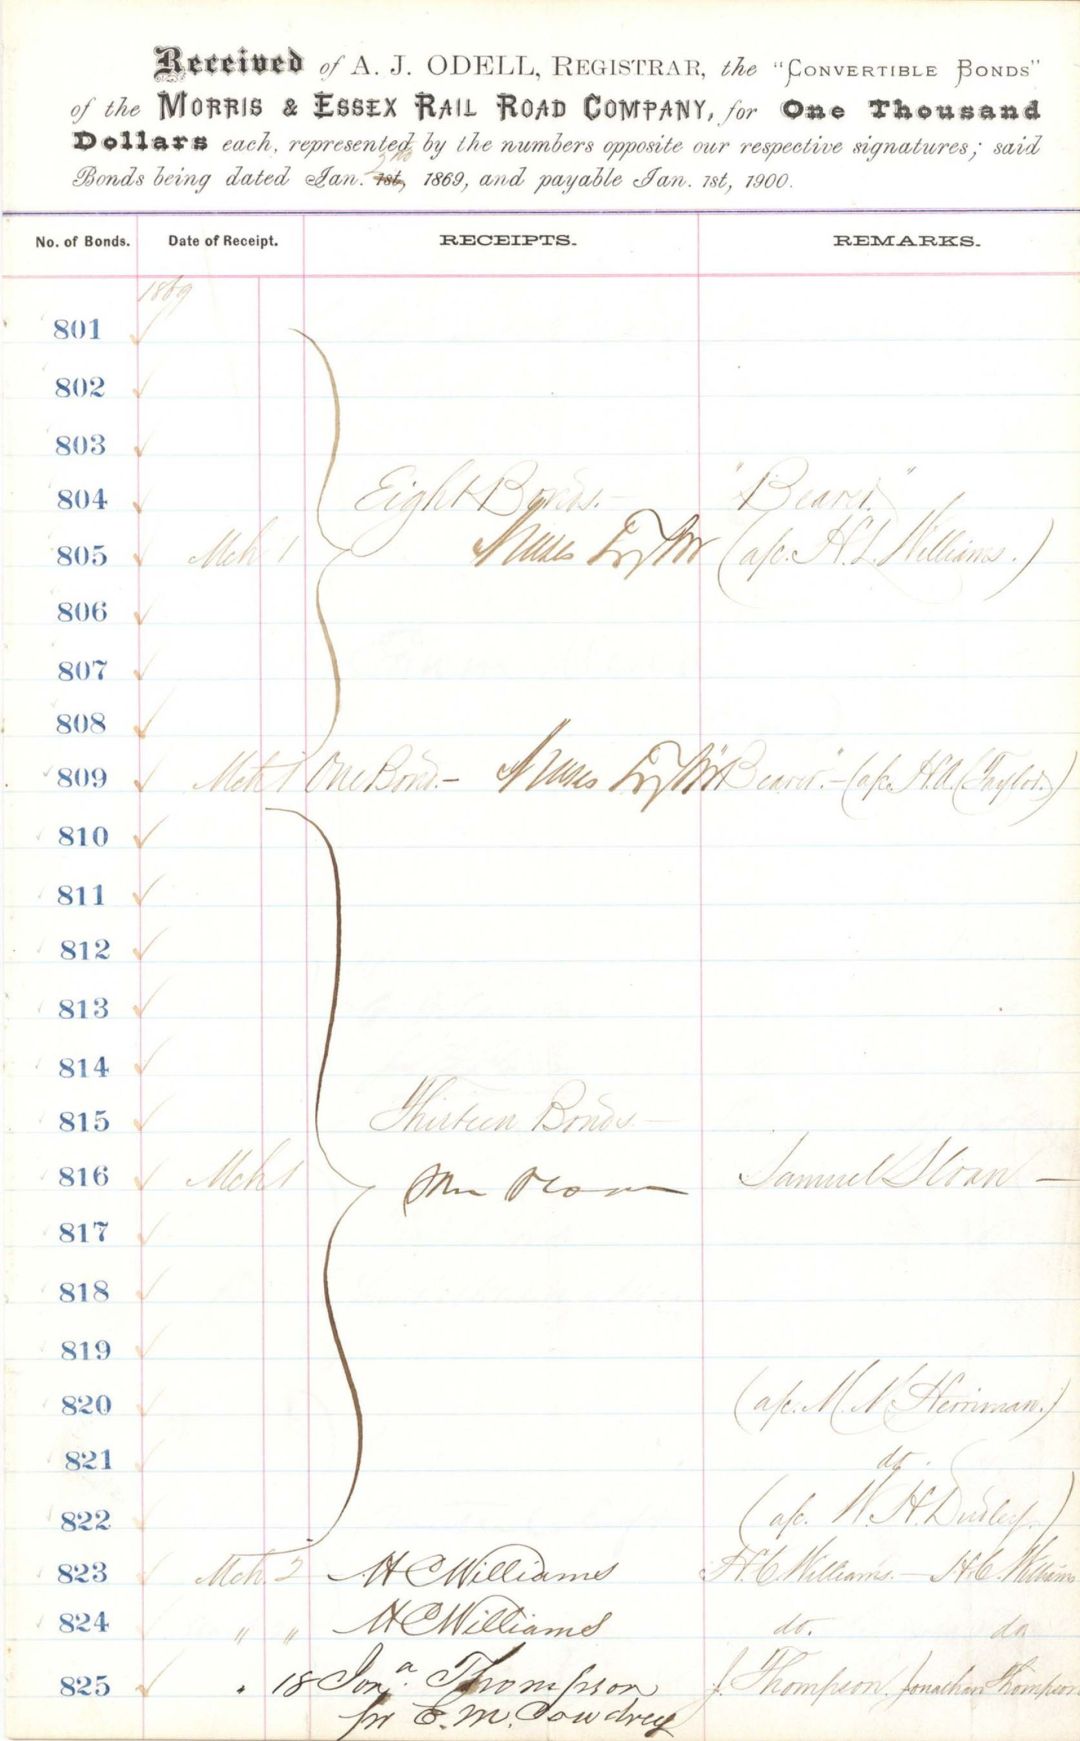 Received of A. J. ODELL, REGISTRAR, the "CONVERTIBLE BONDS"
of the MORRIS & ESSEX RAIL ROAD COMPANY, for One Thousand
Dollars each, represented by the numbers opposite our respective signatures; said
Bonds being dated Jan. 1st, 2nd 1869, and payable Jan. 1st, 1900.
No. of Bonds. Date of Receipt. RECEIPTS. REMARKS.
1869
801
802
803
804 Eight Bonds.— "Bearer."
805 Mch 1 (a/c. H. L. Williams.)
806
807
808
809 Mch 1 One Bond.— "Bearer."— (a/c. H. A. Taylor.)
810
811
812
813
814
815 Thirteen Bonds.—
816 Mch 1 Sam Sloan Samuel Sloan —
817
818
819
820 (a/c. M. N. Herriman.)
821 do.
822 (a/c. W. H. Dudley.)
823 Mch. 2 H C Williams H. C. Williams.— H. C. Williams
824 " " H C Williams do. do
825 " 18 Jona. Thompson J. Thompson. Jonathan Thompson
pr E. M. Cowdrey